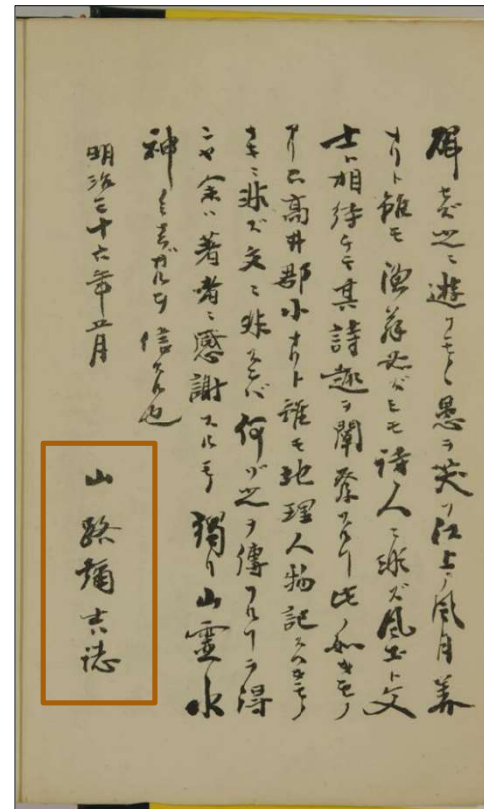 セズ之ニ遊ブモノヽ愚ヲ笑フ江上ノ風月美
ナリト雖モ漁翁必ズシモ詩人ニ非ズ風土ト文
士ト相待チテ其詩趣ヲ闡発スルコト此ノ如キモノ
アリ上高井郡小ナリト雖モ地理人物記スベキモノ
ナキニ非ズ文ニ非ズンバ何ゾ之ヲ傳フルコトヲ得
ンヤ余ハ著者ニ感謝スルモノ獨リ山靈水
神ノミナラザルヲ信ズル也
明治三十六年五月
山路彌吉誌